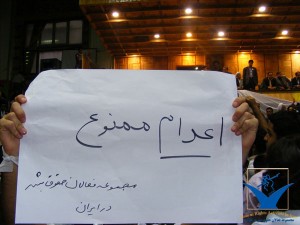 اعدام ممنوع
مجموعه فعالان حقوق بشر
در ایران